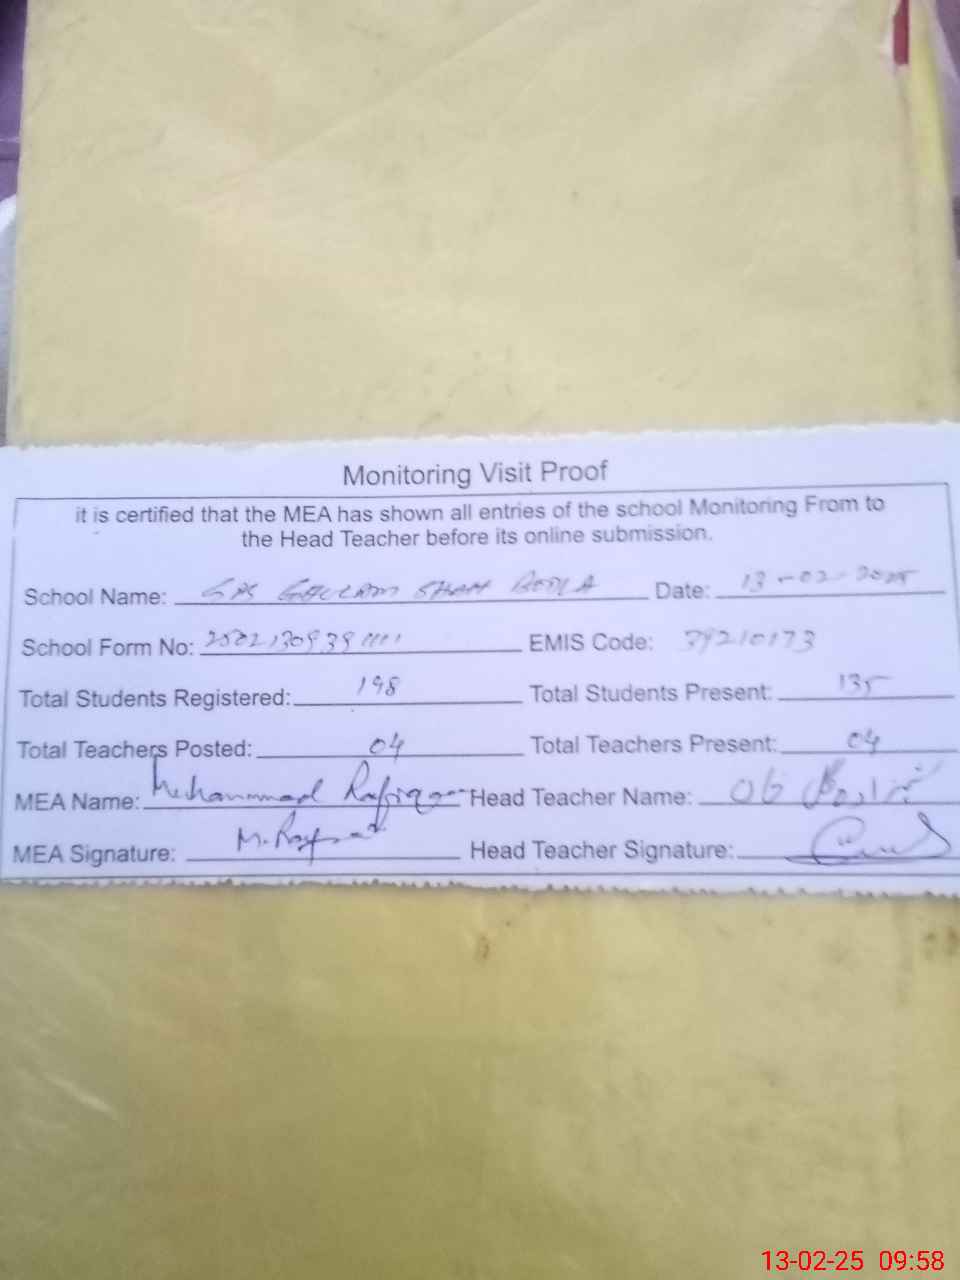 Monitoring Visit Proof
it is certified that the MEA has shown all entries of the school Monitoring From to
the Head Teacher before its online submission.
School Name: GPS GHULAM SHAH Date: 13-02-2025
School Form No: EMIS Code: 39210173
Total Students Registered: 198 Total Students Present: 135
Total Teachers Posted: 04 Total Teachers Present: 04
MEA Name: Muhammad Head Teacher Name:
MEA Signature: Head Teacher Signature:
13-02-25 09:58